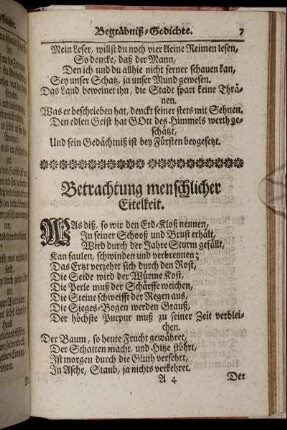 Begräbniß-Gedichte. 7
Mein Leser, willst du noch vier kleine Reimen lesen,
So dencke, daß der Mann,
Den ich und du allhie nicht ferner schauen kan,
Sey unser Schatz, ja unser Mund gewesen.
Das Land beweinet ihn, die Stadt spart keine Thrä-
nen.
Was er beschrieben hat, denckt seiner stets mit Sehnen.
Den edlen Geist hat GOtt des Himmels werth ge-
schätzt,
Und sein Gedächtniß ist bey Fürsten beygesetzt.
Betrachtung menschlicher
Eitelkeit.
WAs diß, so wir den Erd-Kloß nennen,
In seiner Schooß und Brust erhält,
Wird durch der Jahre Sturm gefällt,
Kan faulen, schwinden und verbrennen;
Das Ertz verzehrt sich durch den Rost,
Die Seide wird der Würme Kost,
Die Perle muß der Schärffe weichen,
Die Steine schweifft der Regen aus,
Die Sieges-Bogen werden Grauß,
Der höchste Purpur muß zu seiner Zeit verblei-
chen.
Der Baum, so heute Frucht gewähret,
Der Schatten macht, und Hitze stöhrt,
Ist morgen durch die Gluth versehrt,
In Asche, Staub, ja nichts verkehret.
A 4 Der